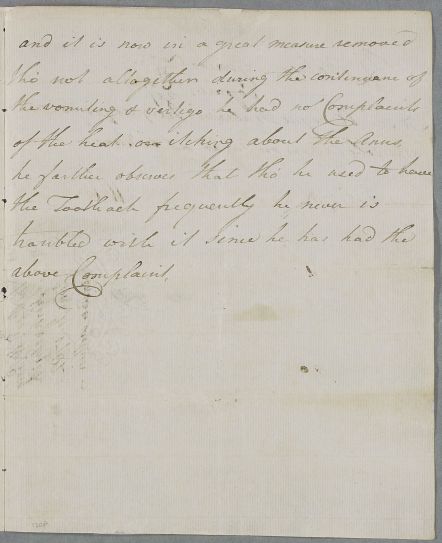 and it is now in a great measure removed
tho not altogether during the continuane of
the vomiting & vertigo he had no Complaints
of the heat or itching about the Anus,
he farther observes that tho he used to have
the Toothach frequently he never is
troubled with it since he has had the
above Complaint.